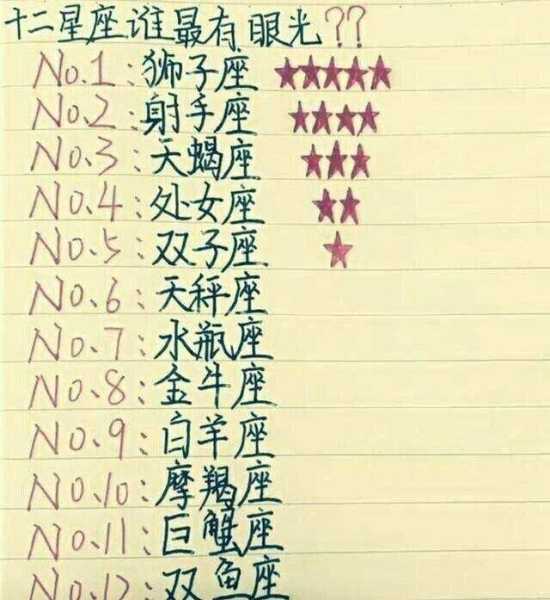 十二星座谁最有眼光??
No.1:狮子座 ★★★★★
No.2:射手座 ★★★★
No.3:天蝎座 ★★★
No.4:处女座 ★★
No.5:双子座 ★
No.6:天秤座
No.7:水瓶座
No.8:金牛座
No.9:白羊座
No.10:摩羯座
No.11:巨蟹座
No.12:双鱼座